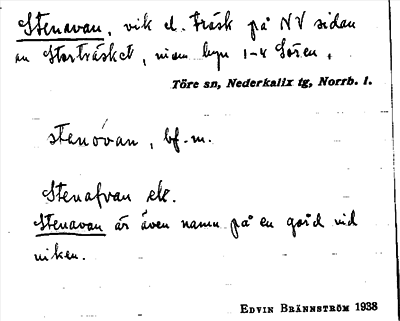 Stenavan, vik el. träsk på NV sidan
av Storträsket, inom byn 1-4 Sören.
Töre sn, Nederkalix tg, Norrb. l.
stenóvan, bf. m.
Stenafvan ek.
Stenavan är även namn på en gård vid
viken.
EDVIN BRÄNNSTRÖM 1938